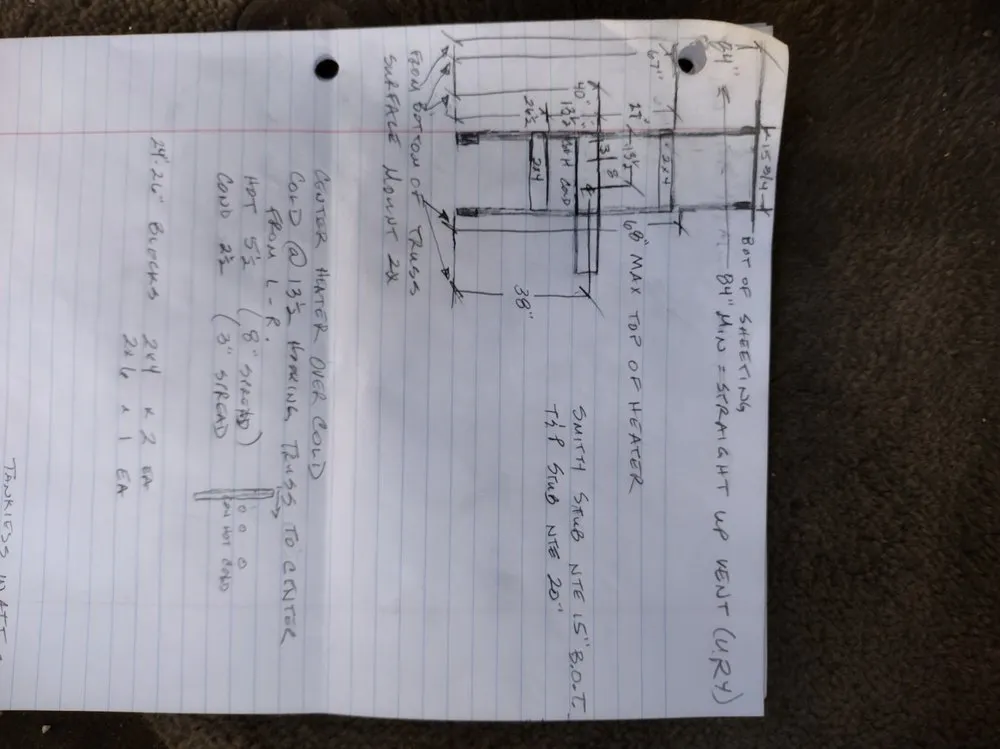 15 3/4
BOT OF SHEETING
84"
84" MIN = STRAIGHT UP VENT (U.R.Y)
67"
2x4
68" MAX TOP OF HEATER
27"
13½
3 8
40"
13½
H COLD
26½
2x4
38"
SMITH STUB NTE 15" B.O.T.
T&P STUB NTE 20"
FROM BOTTOM OF TRUSS
SURFACE MOUNT 2X
CENTER HEATER OVER COLD
COLD @ 13½ TRUSS TO CENTER
FROM L-R.
HOT 5½ (8" SPREAD)
COND 2½ (3" SPREAD)
CON HOT COLD
24"-26" BLOCKS 2x4 x 2 EA
2x6 x 1 EA
TANKLESS IN ATT